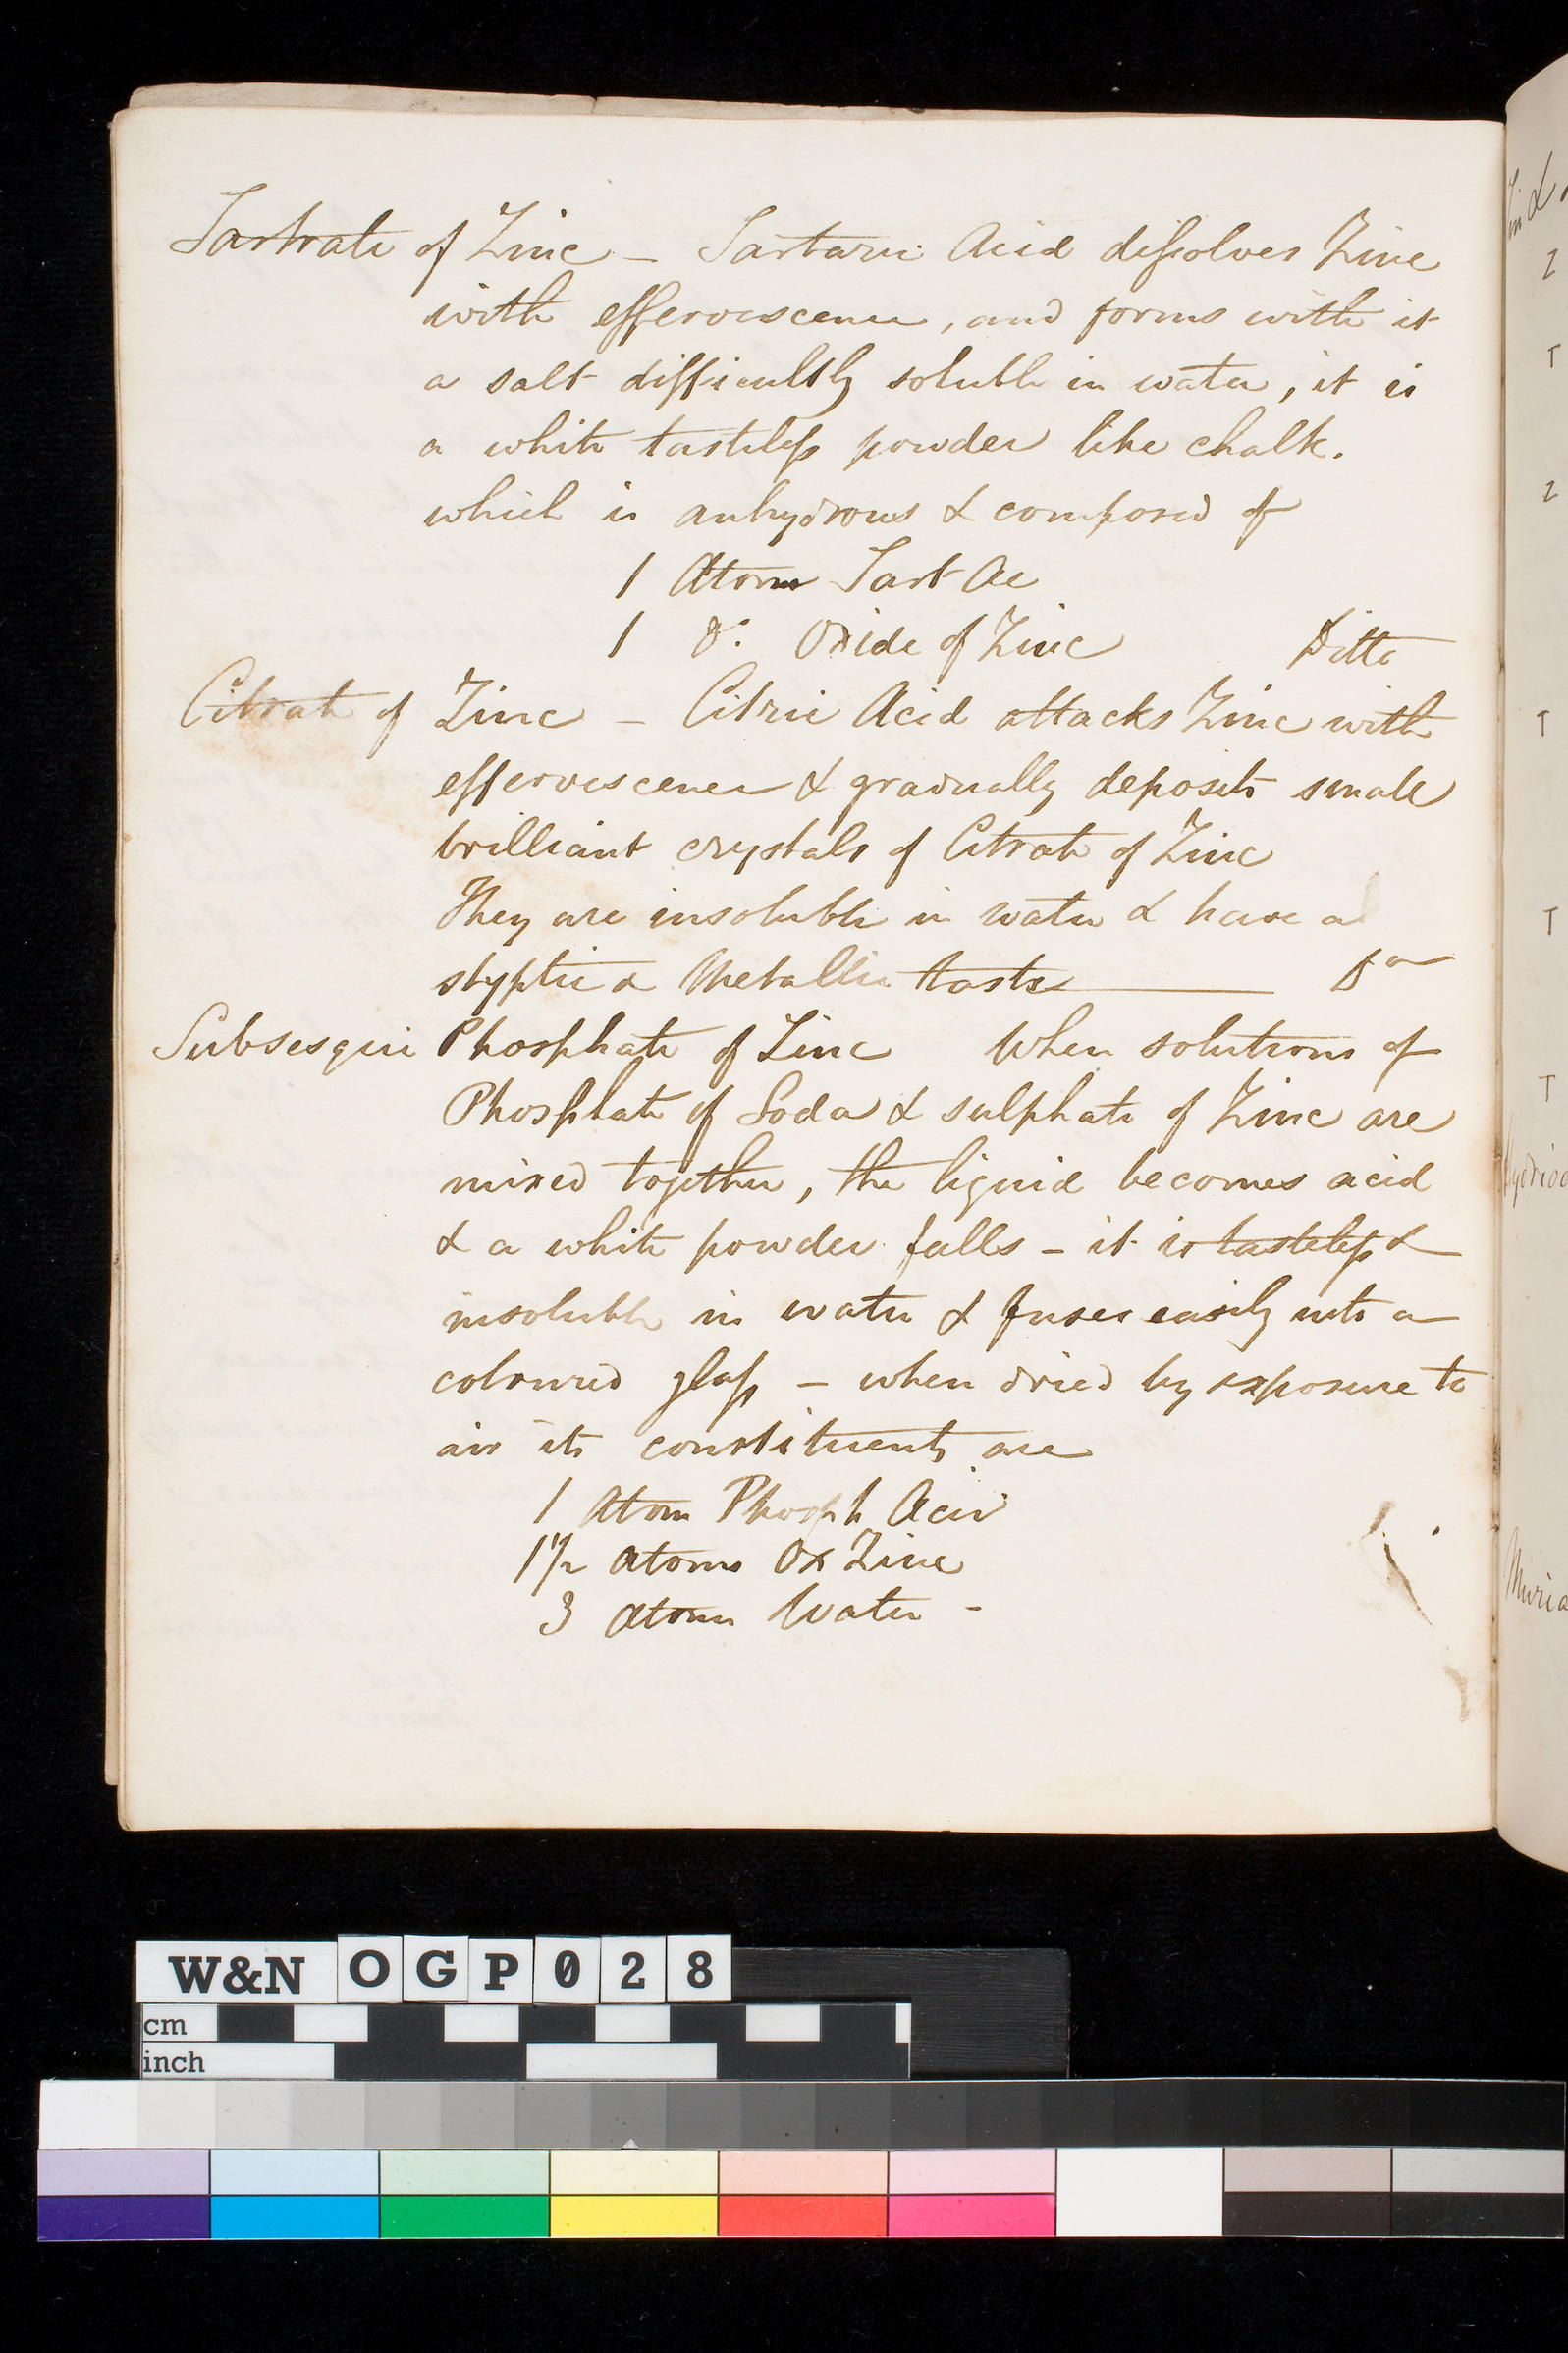 Tartrate of Zinc – Tartaric Acid dissolves Zinc
with effervescence, and forms with it
a salt difficultly soluble in water, it is
a white tasteless powder like chalk.
which is anhydrous & composed of
1 Atom Tart Ac
1 do. Oxide of Zinc Ditto
Citrate of Zinc – Citric Acid attacks Zinc with
effervescence & gradually deposits small
brilliant crystals of Citrate of Zinc
They are insoluble in water & have a
styptic & Metallic taste Do
Subsesqui Phosphate of Zinc When solutions of
Phosphate of Soda & sulphate of Zinc are
mixed together, the liquid becomes acid
& a white powder falls – it is tasteless &
insoluble in water & fuses easily into a
coloured glass – when dried by exposure to
air its constituents are
1 Atom Phosph Acid
1½ atoms Ox Zinc
3 atoms Water –
W&N OGP028
cm
inch